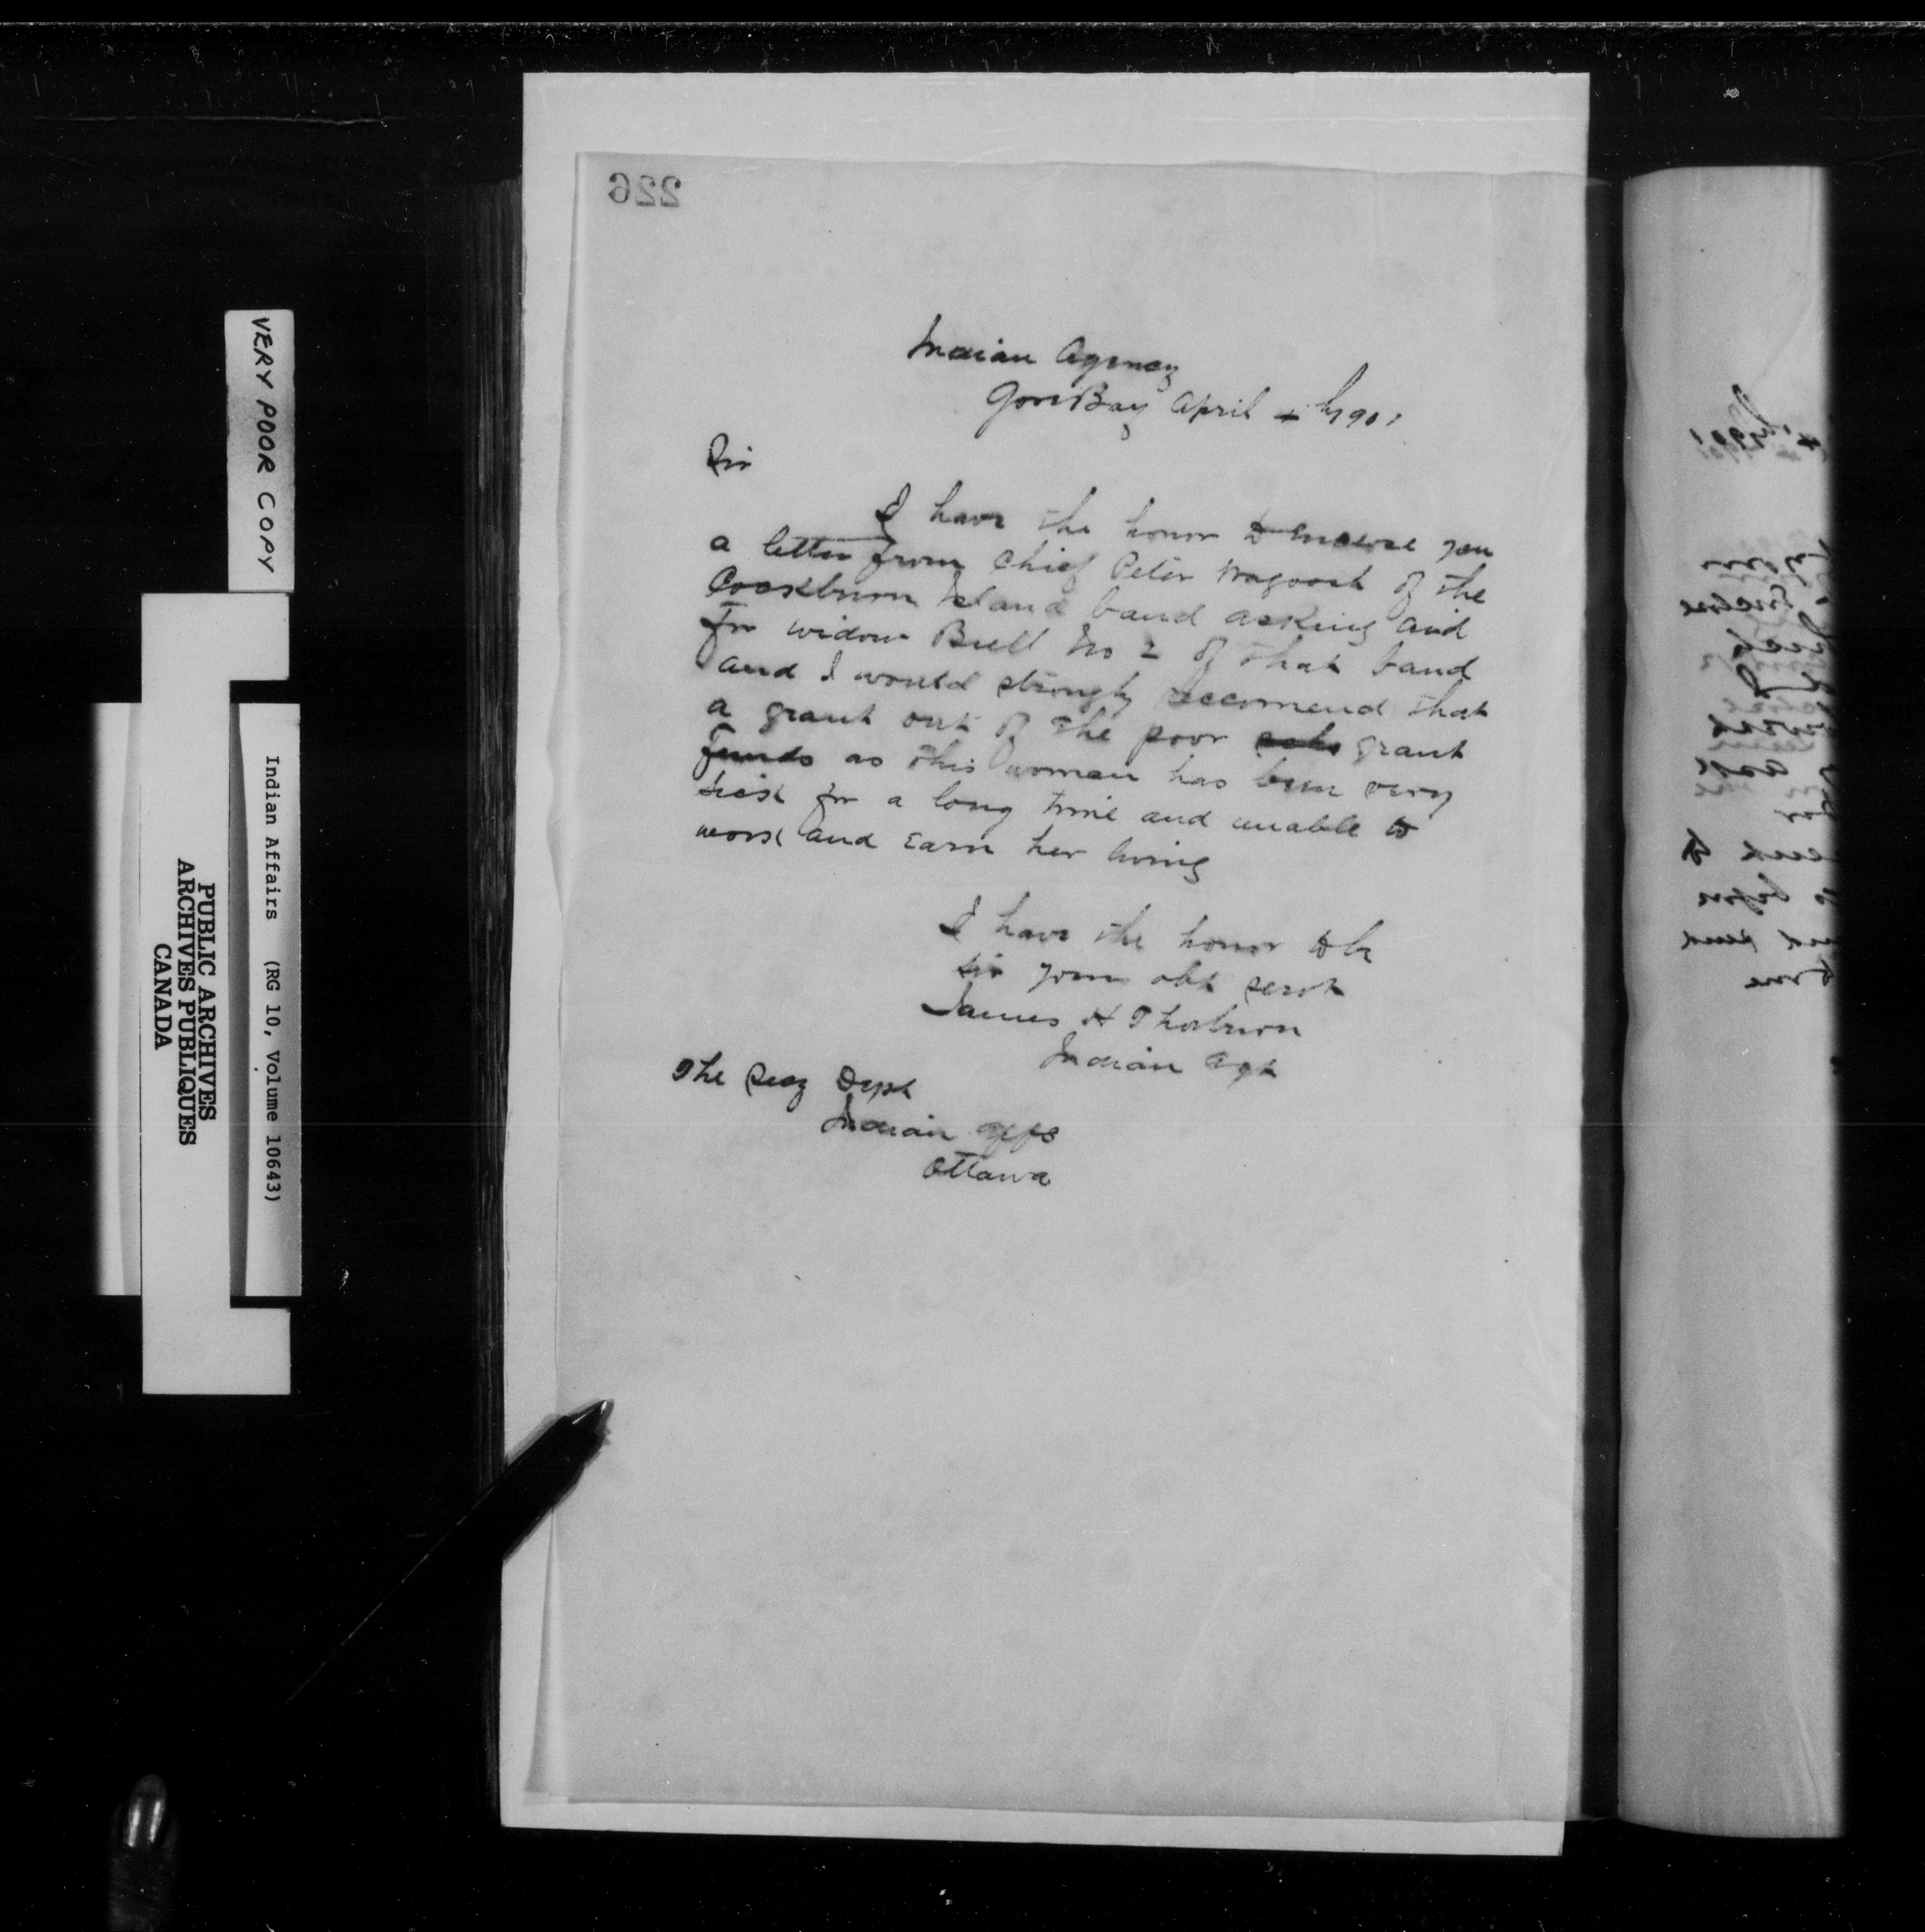 226
Indian Agency
Gore Bay April 4th 1901
Sir
I have the honor to enclose you
a letter from Chief Peter Wagoosh of the
Cockburn Island band asking aid
for widow Buell No 2 of that band
and I would strongly recomend that
a grant out of the poor grant
funds as this woman has been very
sick for a long time and unable to
work and earn her living
I have the honor to be
Sir your obt servt
James H Thorburn
Indian Agt
The Secy Dept
Indian Affs
Ottawa
VERY POOR COPY
Indian Affairs (RG 10, Volume 10643)
PUBLIC ARCHIVES
ARCHIVES PUBLIQUES
CANADA